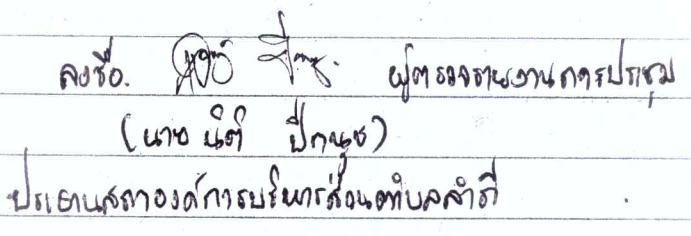 ลงชื่อ. ผู้ตรวจรายงานการประชุม
(นาย นิติ ปิกนุช)
ประธานสภาองค์การบริหารส่วนตำบลลำภี